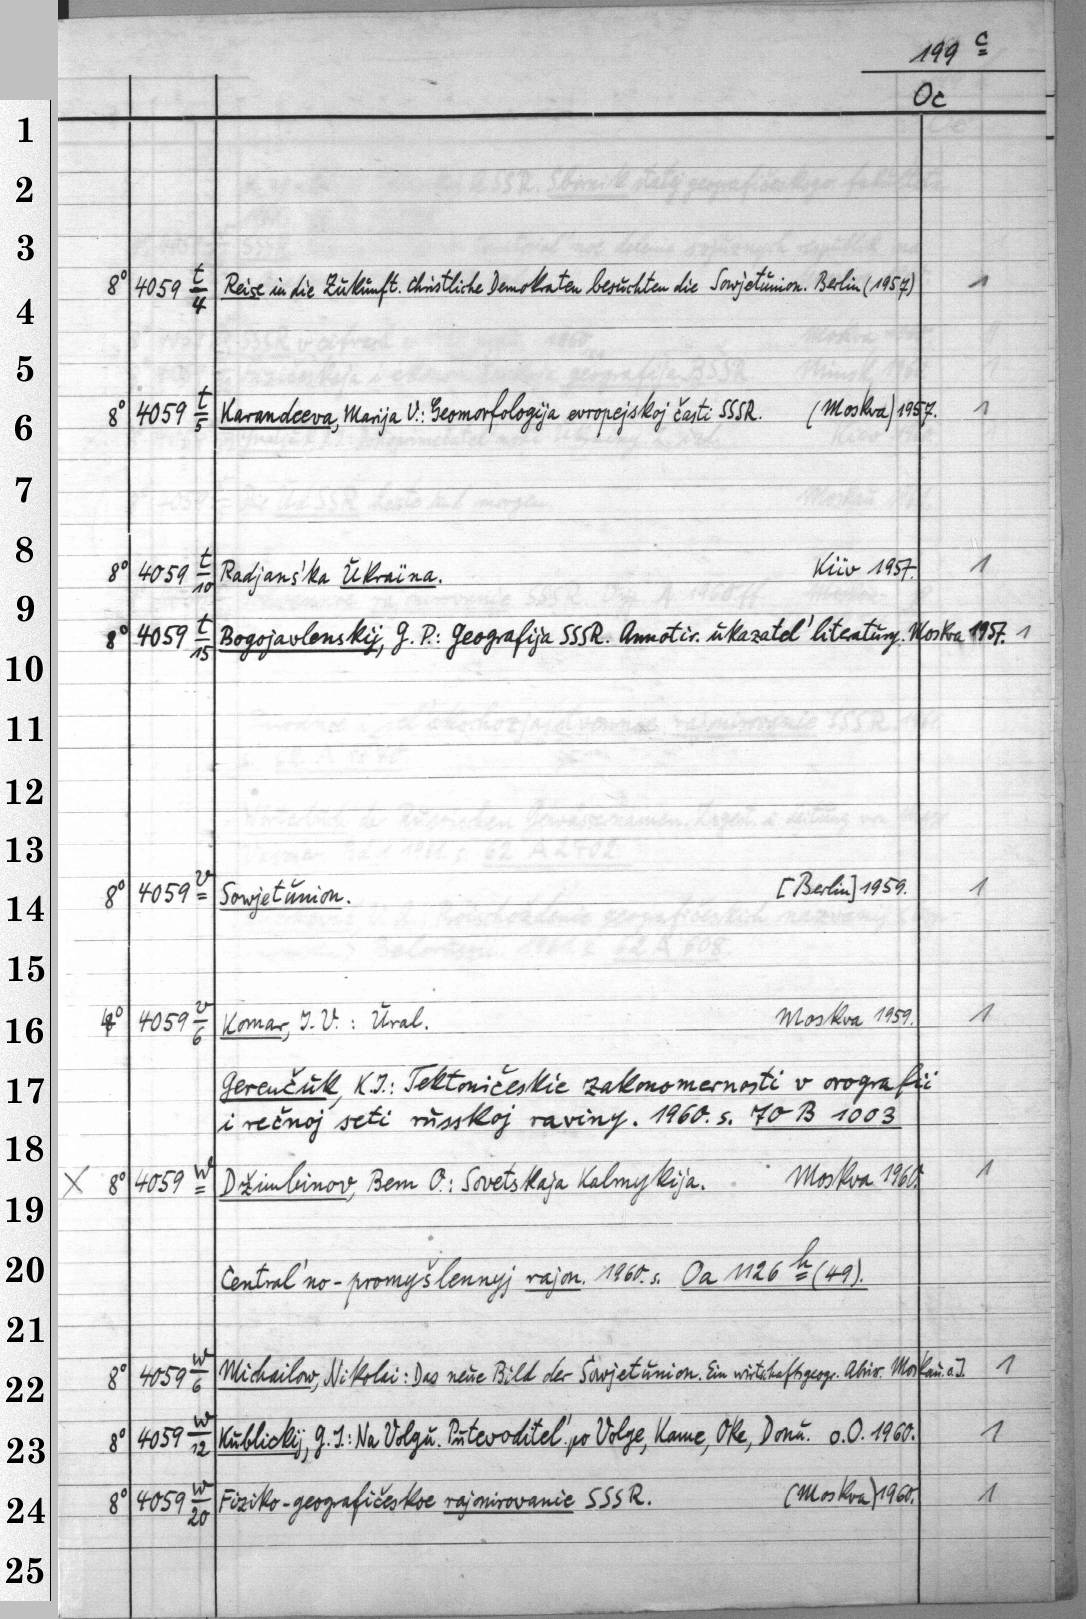 199 c
Oc
1
2
3
8° 4059 t/4 Reise in die Zukunft. Christliche Demokraten besuchten die Sowjetunion. Berlin (1957) 1
4
5
6 8° 4059 t/5 Karandeeva, Marija V.: Geomorfologija evropejskoj časti SSSR. (Moskva) 1957. 1
7
8
8° 4059 t/10 Radjans'ka Ukraïna. Kiïv 1957. 1
9
8° 4059 t/15 Bogojavlenskij, G. P.: Geografija SSSR. Annotir. ukazatel' literatury. Moskva 1957. 1
10
11
12
13
14 8° 4059 v Sowjetunion. [Berlin] 1959. 1
15
16 4° 4059 v/6 Komar, I. V.: Ural. Moskva 1959. 1
17 Gerenčuk, K. I.: Tektoničeskie zakonomernosti v orografii
i rečnoj seti russkoj raviny. 1960. s. 70 B 1003
18
X 8° 4059 w Džimbinov, Bem O.: Sovetskaja Kalmykija. Moskva 1960. 1
19
20 Central'no-promyšlennyj rajon. 1960. s. Oa 1126 h (49).
21
22 8° 4059 w/6 Michailow, Nikolai: Das neue Bild der Sowjetunion. Ein wirtschaftsgeogr. Abriss. Moskau o. J. 1
23 8° 4059 w/12 Kublickij, G. I.: Na Volgu. Putevoditel' po Volge, Kame, Oke, Donu. o. O. 1960. 1
24 8° 4059 w/20 Fiziko-geografičeskoe rajonirovanie SSSR. (Moskva) 1960. 1
25